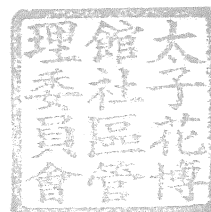 太子花博
館社區管
理委員會